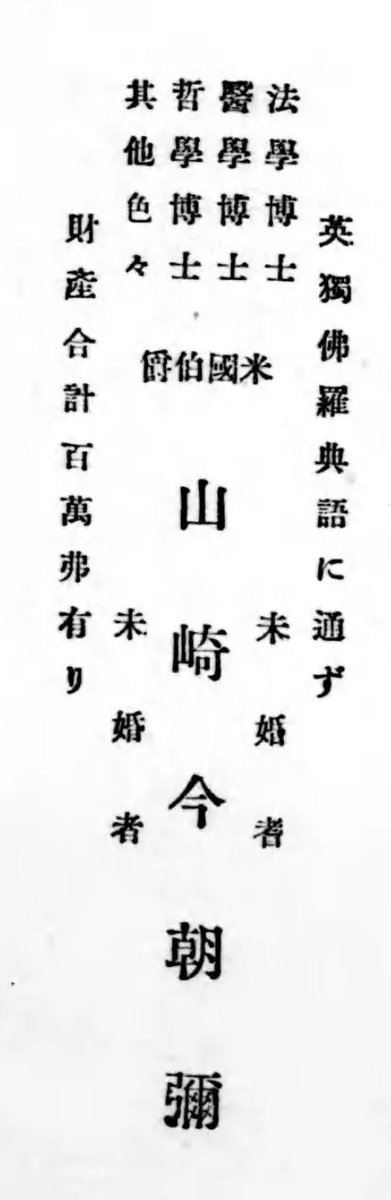 英獨佛羅典語に通ず
法學博士
醫學博士
哲學博士
其他色々
米國伯爵
未婚者
山崎今朝彌
未婚者
財產合計百萬弗有り